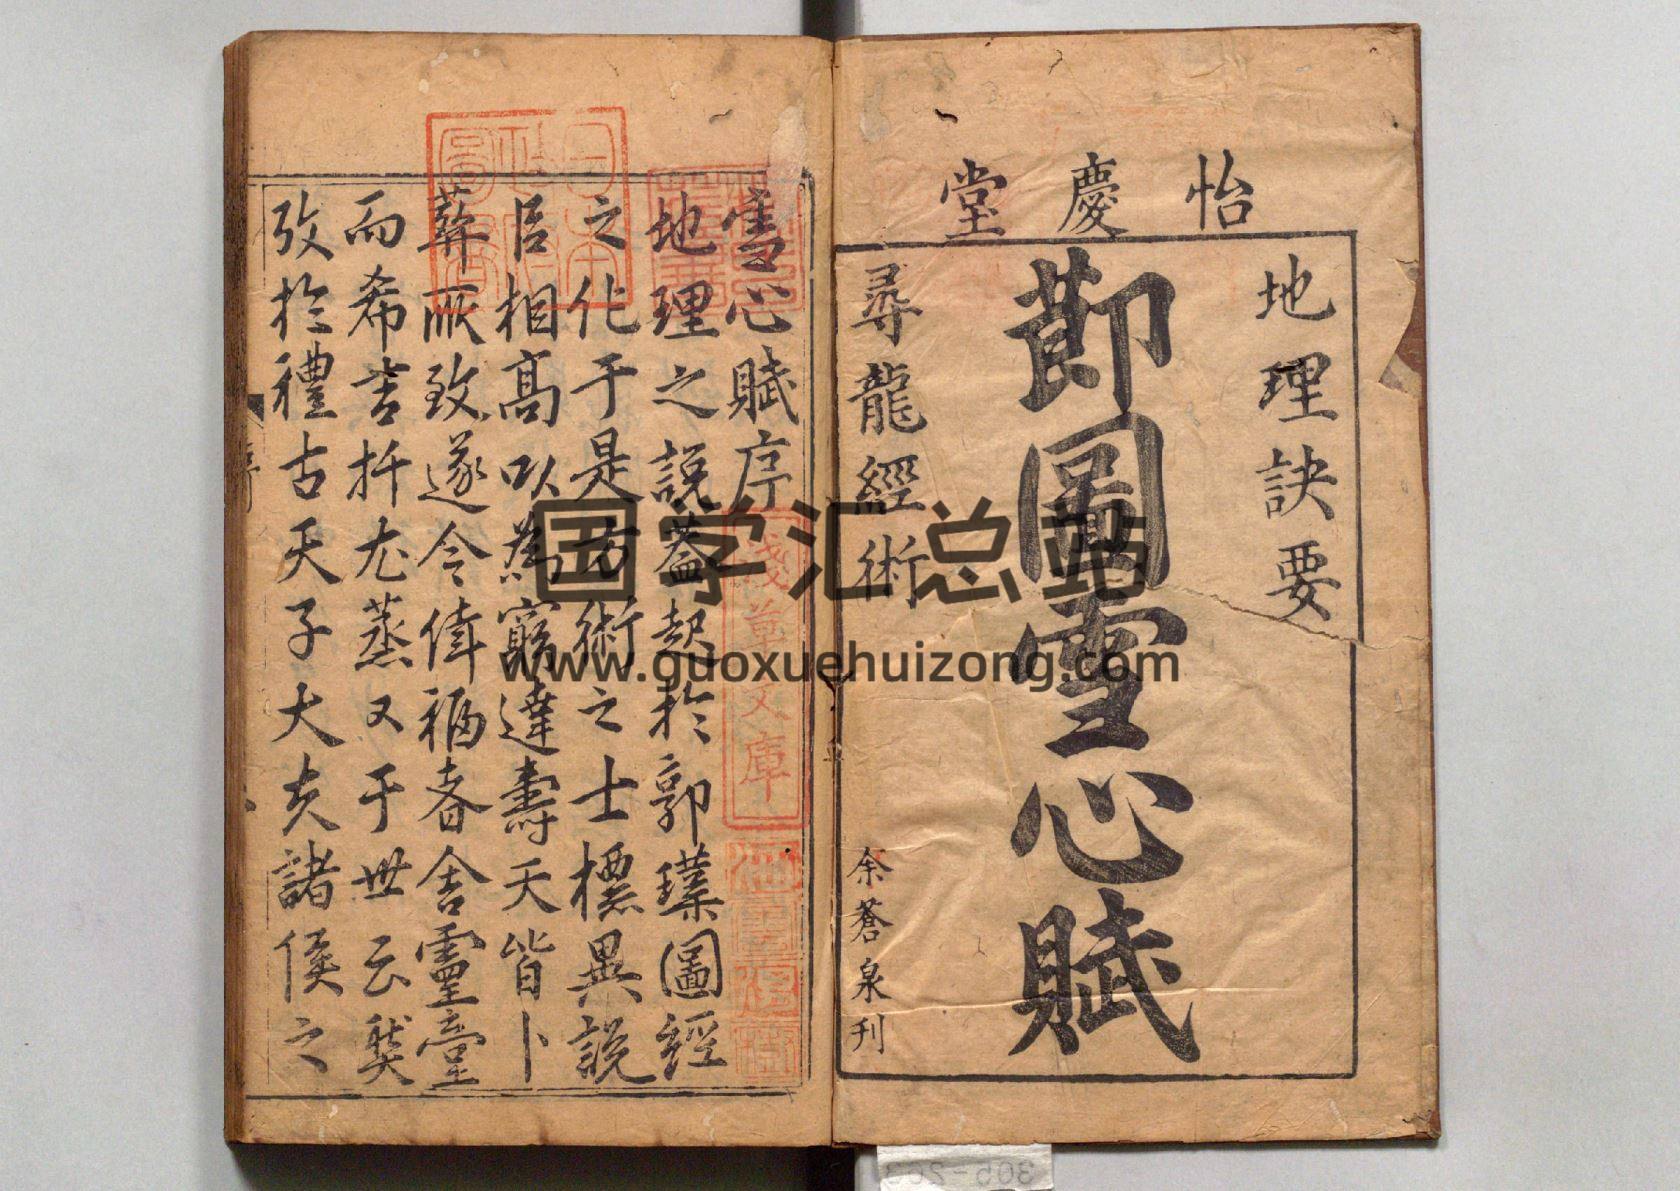 怡慶堂
地理訣要
節圖雪心賦
尋龍經術
余蒼泉刊
雪心賦序
地理之說蓋起於郭璞圖經
之化于是方術之士標異說
相高以為窮達壽夭皆卜
厥致遂令徫福者舍靈臺
而希吉扦尤蒸又于世云獘
攷於禮古天子大夫諸侯之
淺草文庫
国学汇总站
www.guoxuehuizong.com